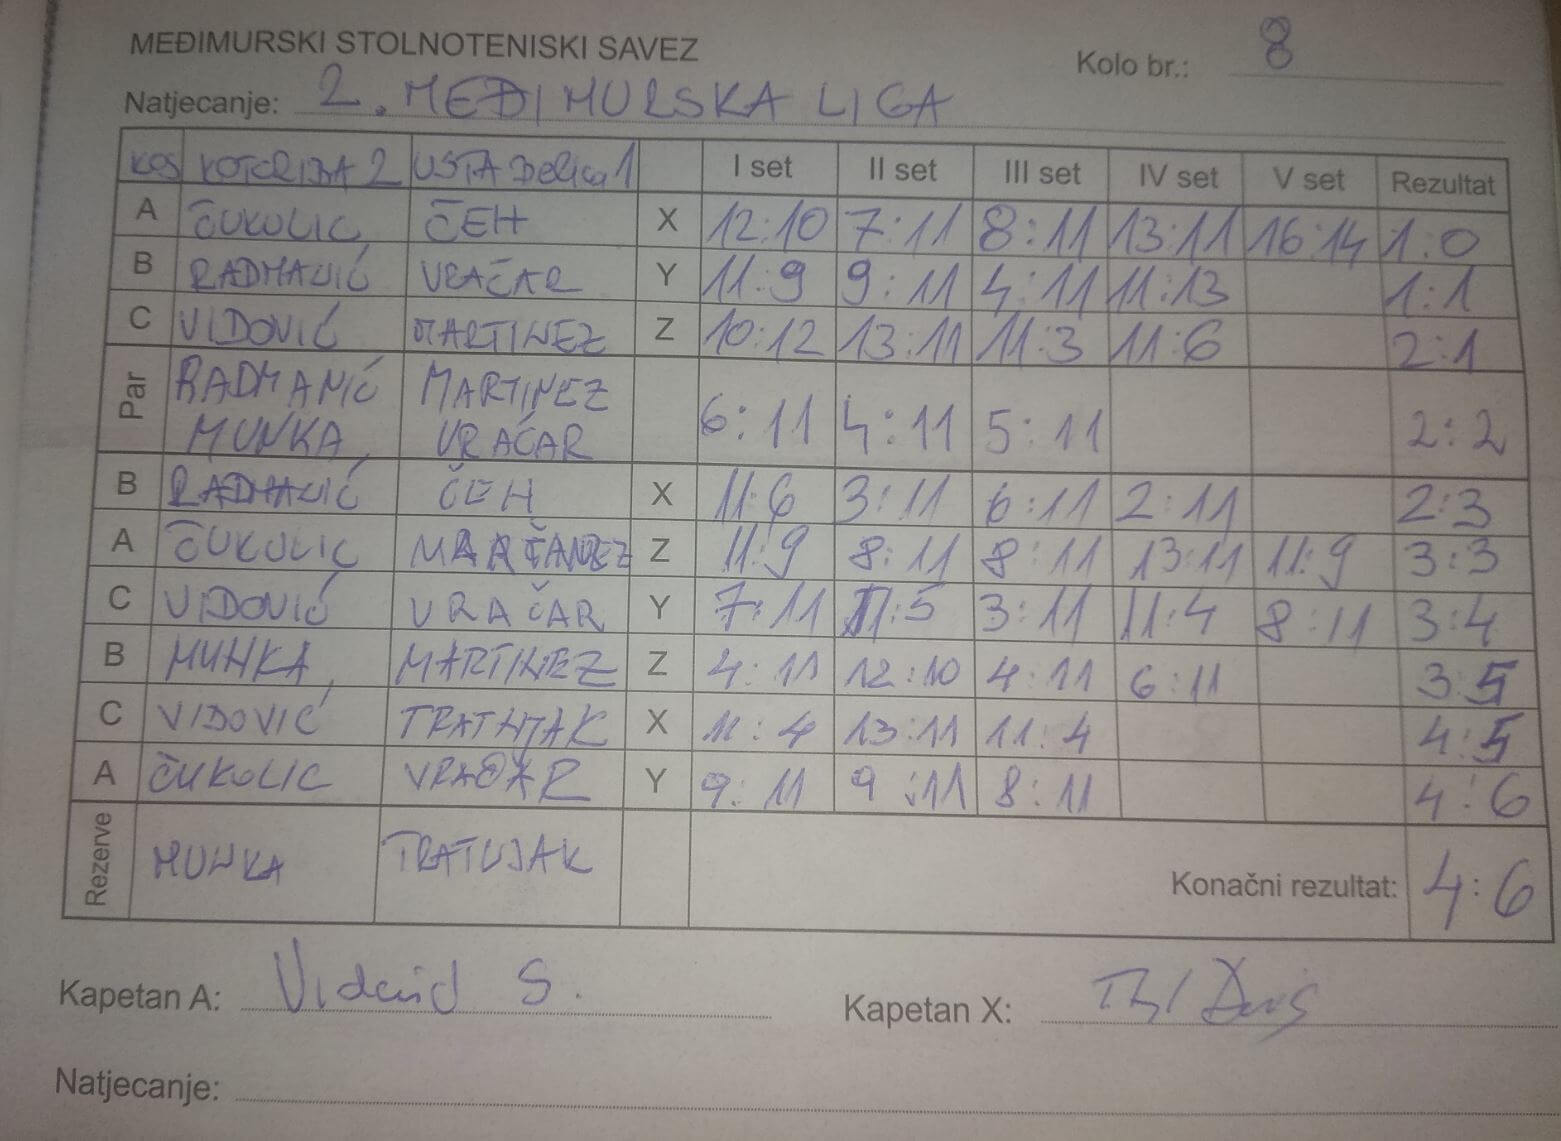 MEĐIMURSKI STOLNOTENISKI SAVEZ
Kolo br.: 8
Natjecanje: 2. MEĐIMURSKA LIGA
KOS KOTORIBA 2 USTA Belica 1 I set II set III set IV set V set Rezultat
A ČUKULIC ČEH X 12:10 7:11 8:11 13:11 16:14 1:0
B RADMANIĆ VRAČAR Y 11:9 9:11 4:11 11:13 1:1
C VIDOVIĆ MARTINEZ Z 10:12 13:11 11:3 11:6 2:1
Par RADMANIĆ MARTINEZ 6:11 4:11 5:11 2:2
MUNKA VRAČAR
B RADMANIĆ ČEH X 11:6 3:11 6:11 2:11 2:3
A ČUKULIC Z 11:9 8:11 8:11 13:11 11:9 3:3
C VIDOVIĆ VRAČAR Y 7:11 11:5 3:11 11:4 8:11 3:4
B MUNKA MARTINEZ Z 4:11 12:10 4:11 6:11 3:5
C VIDOVIĆ TRATNJAK X 11:4 13:11 11:4 4:5
A ČUKOLIC VRAČAR Y 9:11 9:11 8:11 4:6
Rezerve MUNKA TRATNJAK Konačni rezultat: 4:6
Kapetan A: Vidović S. Kapetan X:
Natjecanje: